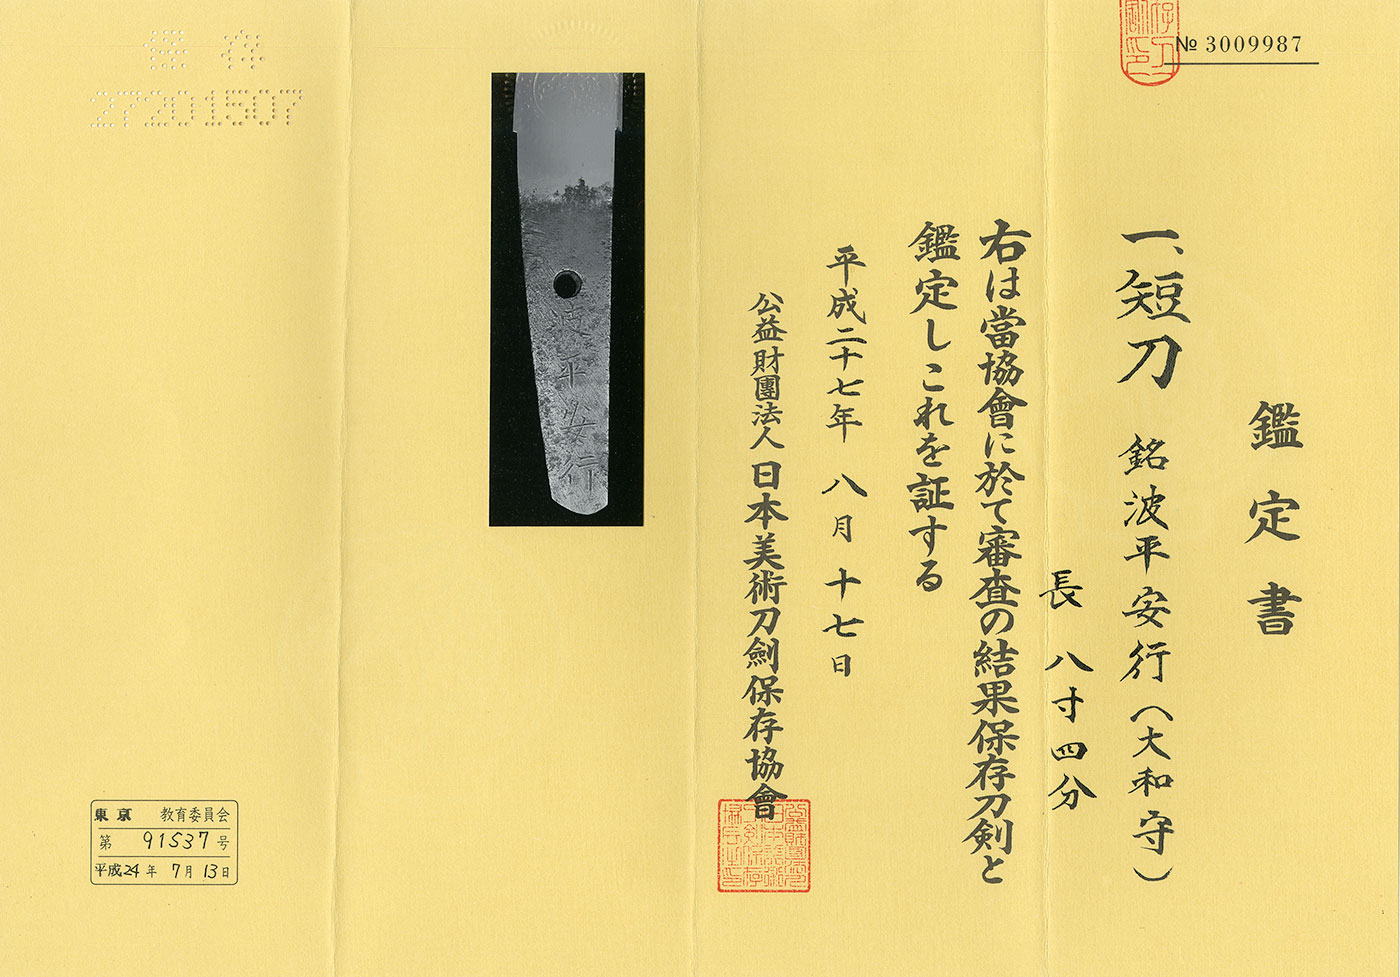 № 3009987
鑑定書
一、短刀 銘波平安行(大和守)
長 八寸四分
右は當協會に於て審査の結果保存刀剣と
鑑定しこれを証する
平成二十七年 八月 十七日
公益財團法人日本美術刀劍保存協會
波平安行
保存
27201507
東京 教育委員会
第 91537 号
平成24年 7月 13日